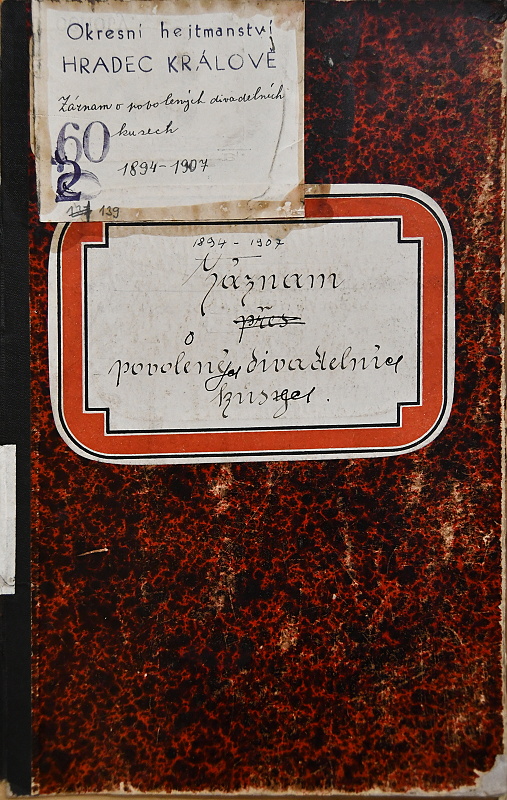 Okresní hejtmanství
HRADEC KRÁLOVÉ
Záznam o povolených divadelních
kusech
60
2
1894-1907
137 139
1894 - 1907
Záznam
přes
o
povolených divadelních
kusech.